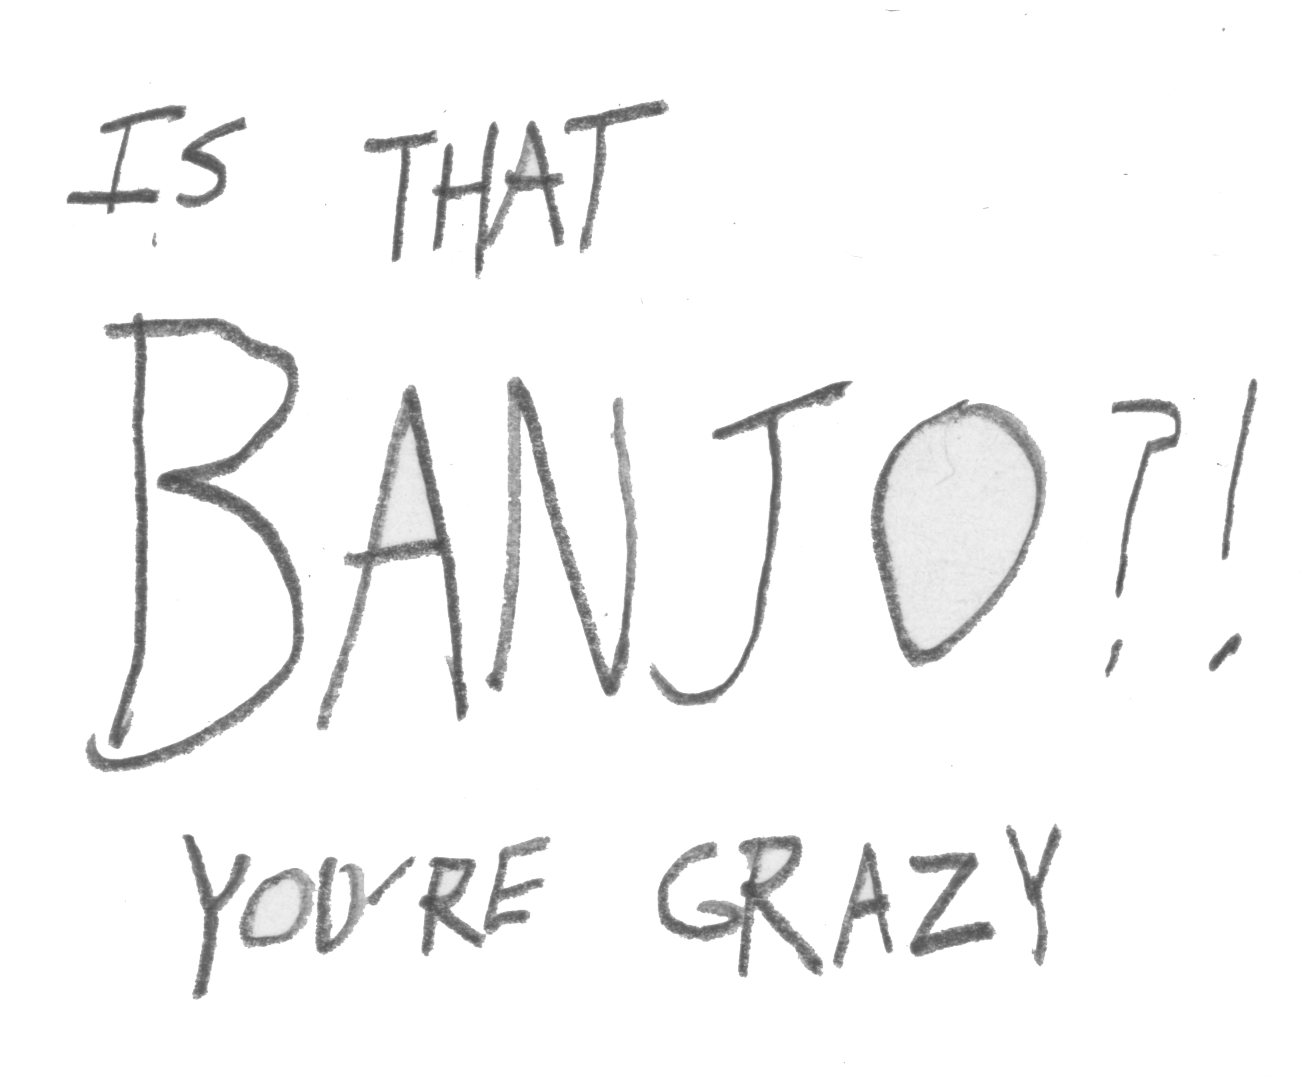 IS THAT
BANJO?!
YOU'RE CRAZY